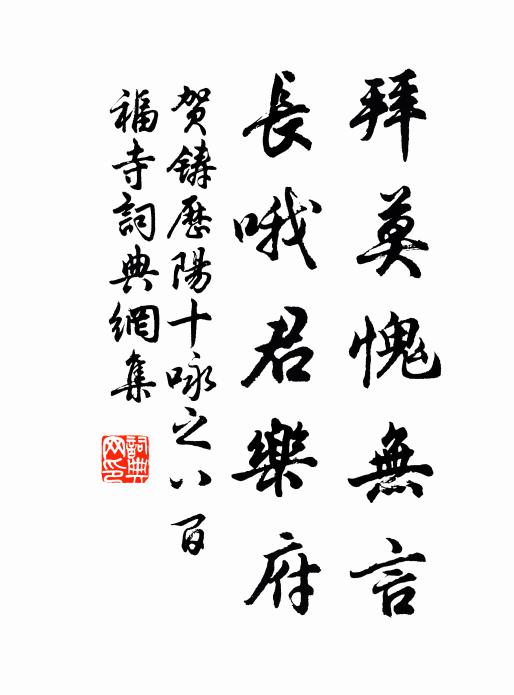 拜莫愧無言
長哦君樂府
賀鑄歷陽十咏之八百
福寺詞典網集
詞典网印